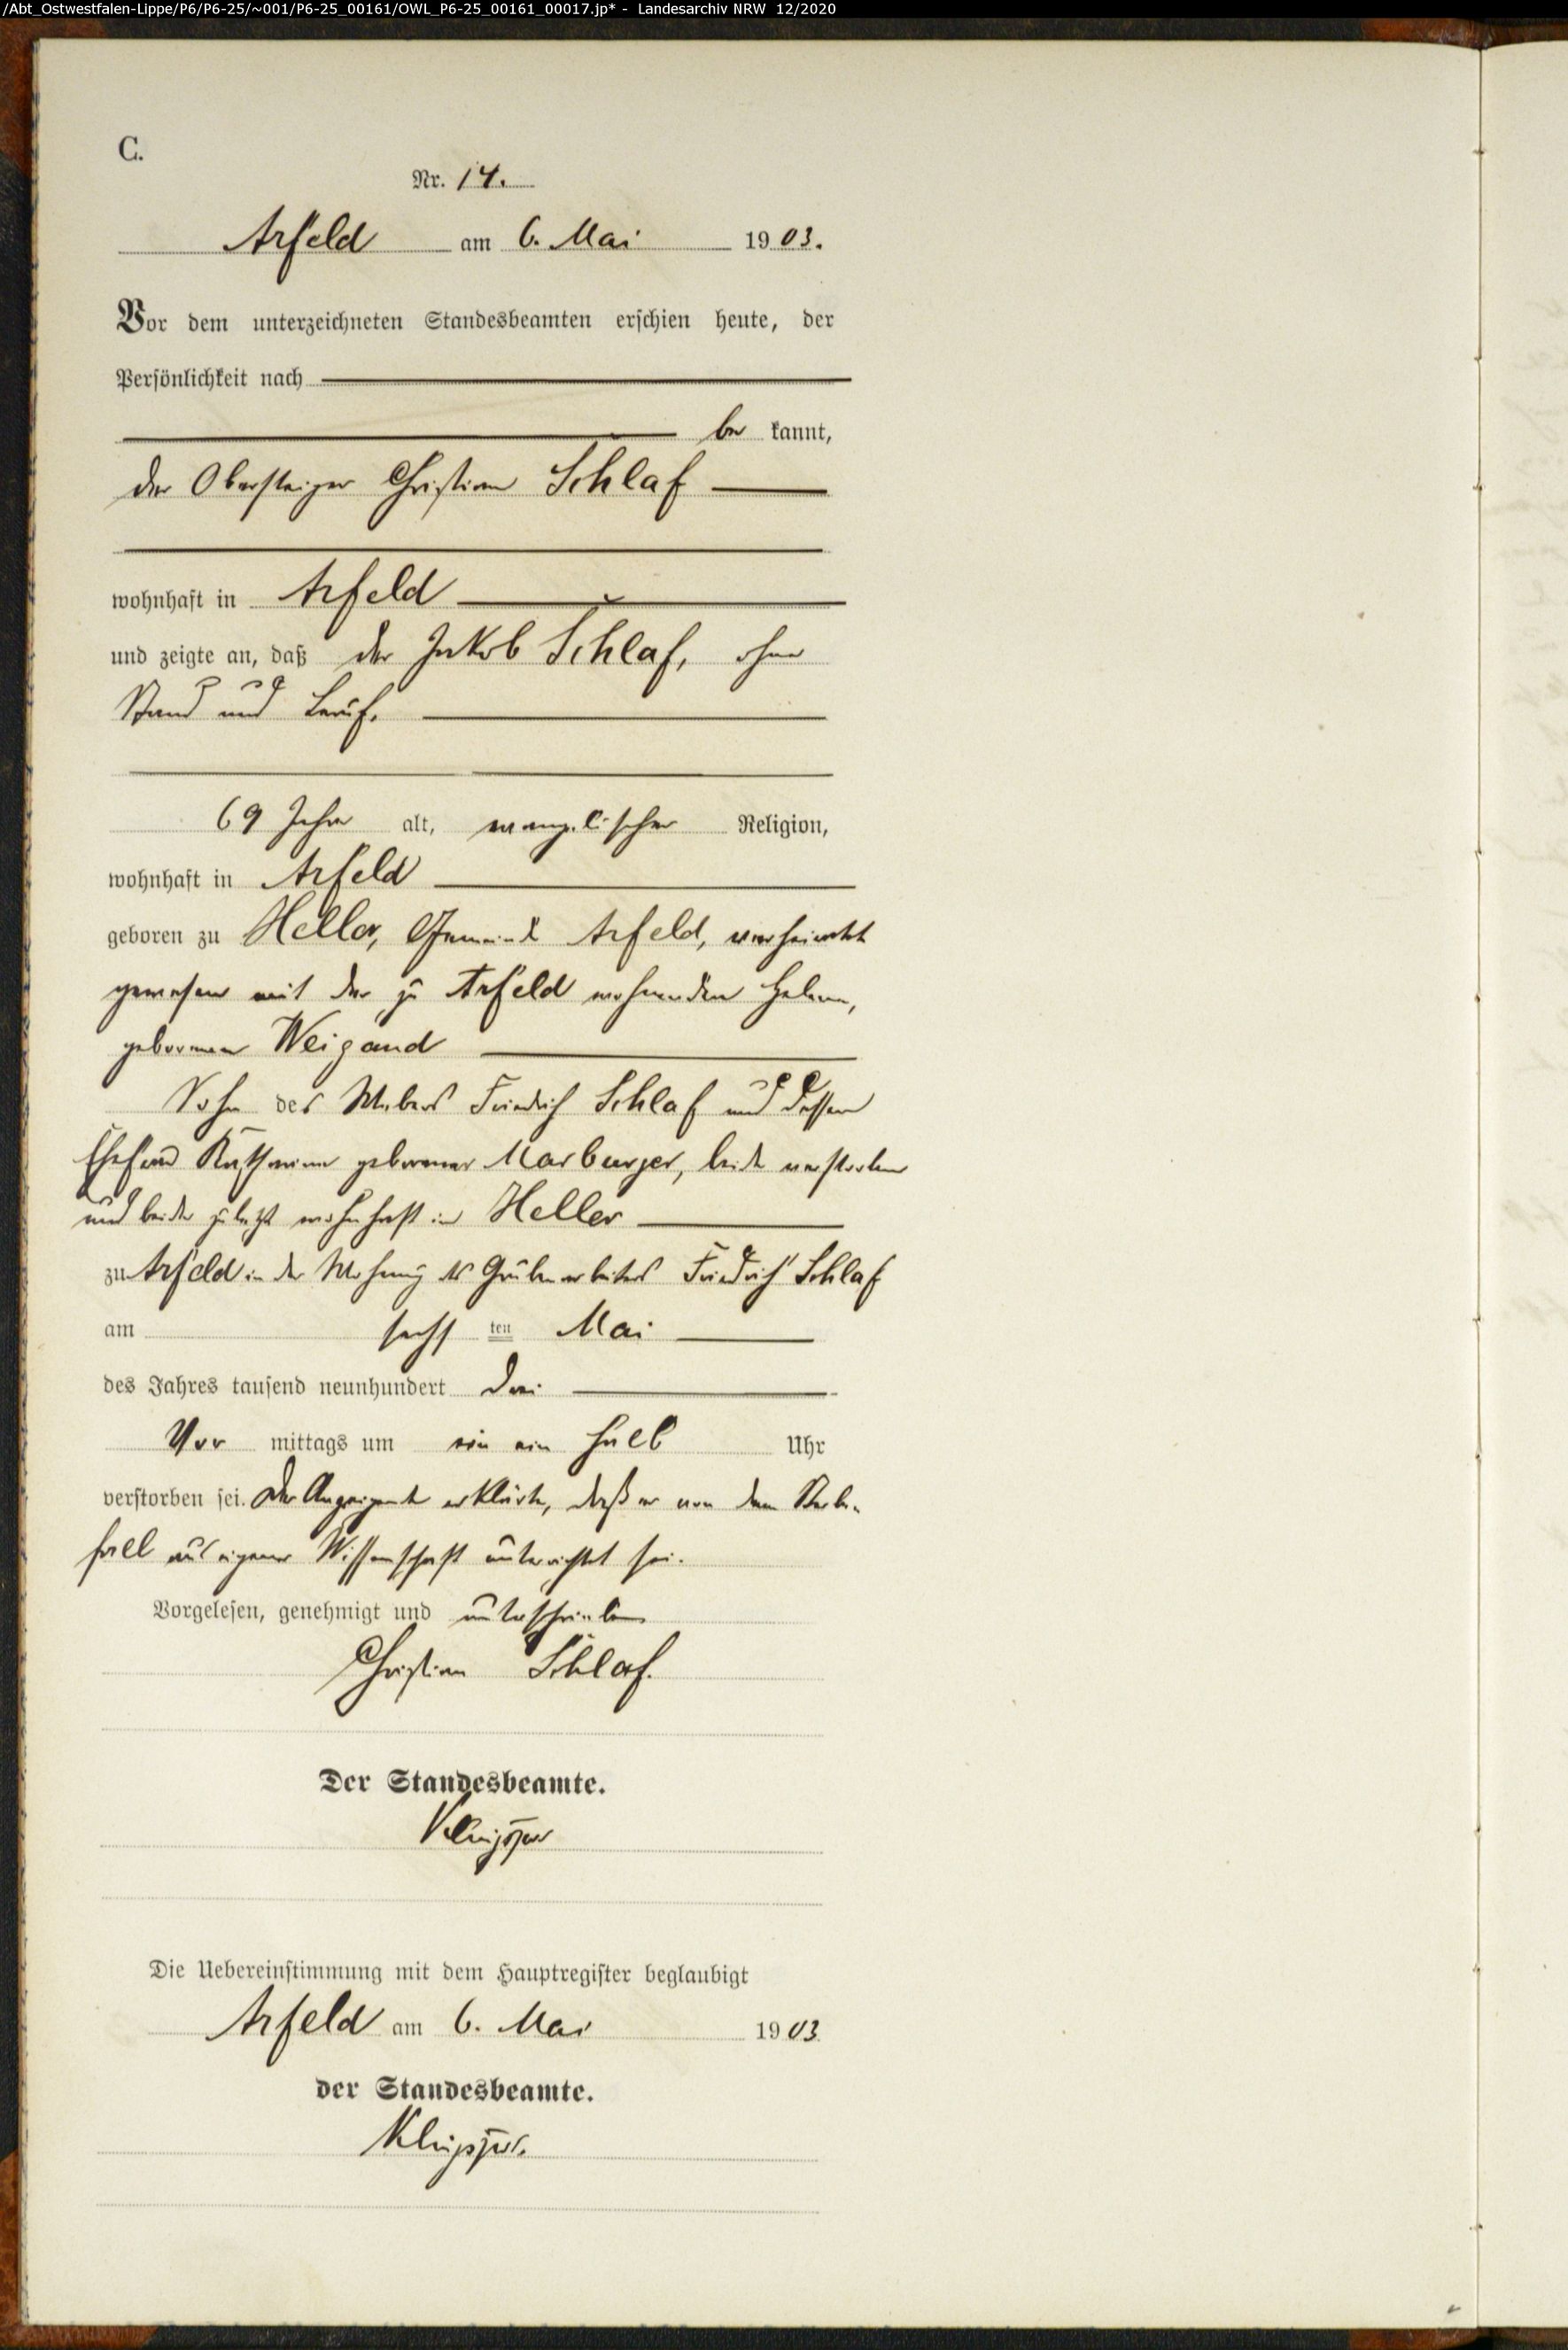 /Abt_Ostwestfalen-Lippe/P6/P6-25/~001/P6-25_00161/OWL_P6-25_00161_00017.jp* - Landesarchiv NRW 12/2020
C.
Nr. 14.
Arfeld am 6. Mai 1903.
Vor dem unterzeichneten Standesbeamten erschien heute, der
Persönlichkeit nach
be kannt,
der Obersteiger Christian Schlaf
wohnhaft in Arfeld
und zeigte an, daß der Jakob Schlaf, ohne
Stand und Beruf.
69 Jahre alt, evangelischer Religion,
wohnhaft in Arfeld
geboren zu Heller, Gemeinde Arfeld, verheiratet
gewesen mit der zu Arfeld wohnenden Helene,
geborenen Weigand
Sohn des Webers Friedrich Schlaf und dessen
Ehefrau Katharine geborener Marburger, beide verstorben
und beide zuletzt wohnhaft in Heller
zu Arfeld in der Wohnung des Grubenarbeiters Friedrich Schlaf
am sechsten Mai
des Jahres tausend neunhundert drei
Vor mittags um ein ein halb Uhr
verstorben sei. Der Anzeigende erklärte, daß er von dem Sterbe-
fall aus eigener Wissenschaft unterrichtet sei.
Vorgelesen, genehmigt und unterschrieben
Christian Schlaf.
Der Standesbeamte.
Die Uebereinstimmung mit dem Hauptregister beglaubigt
Arfeld am 6. Mai 1903
der Standesbeamte.